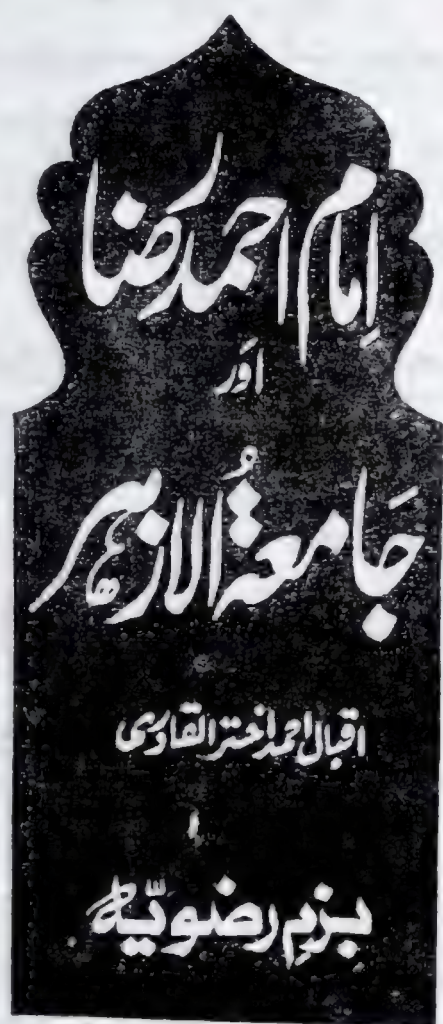 اِمام احمد رضا
اَور
جَامعةُ الازہر
اقبال احمد اختر القادری
بزمِ رضویّہ